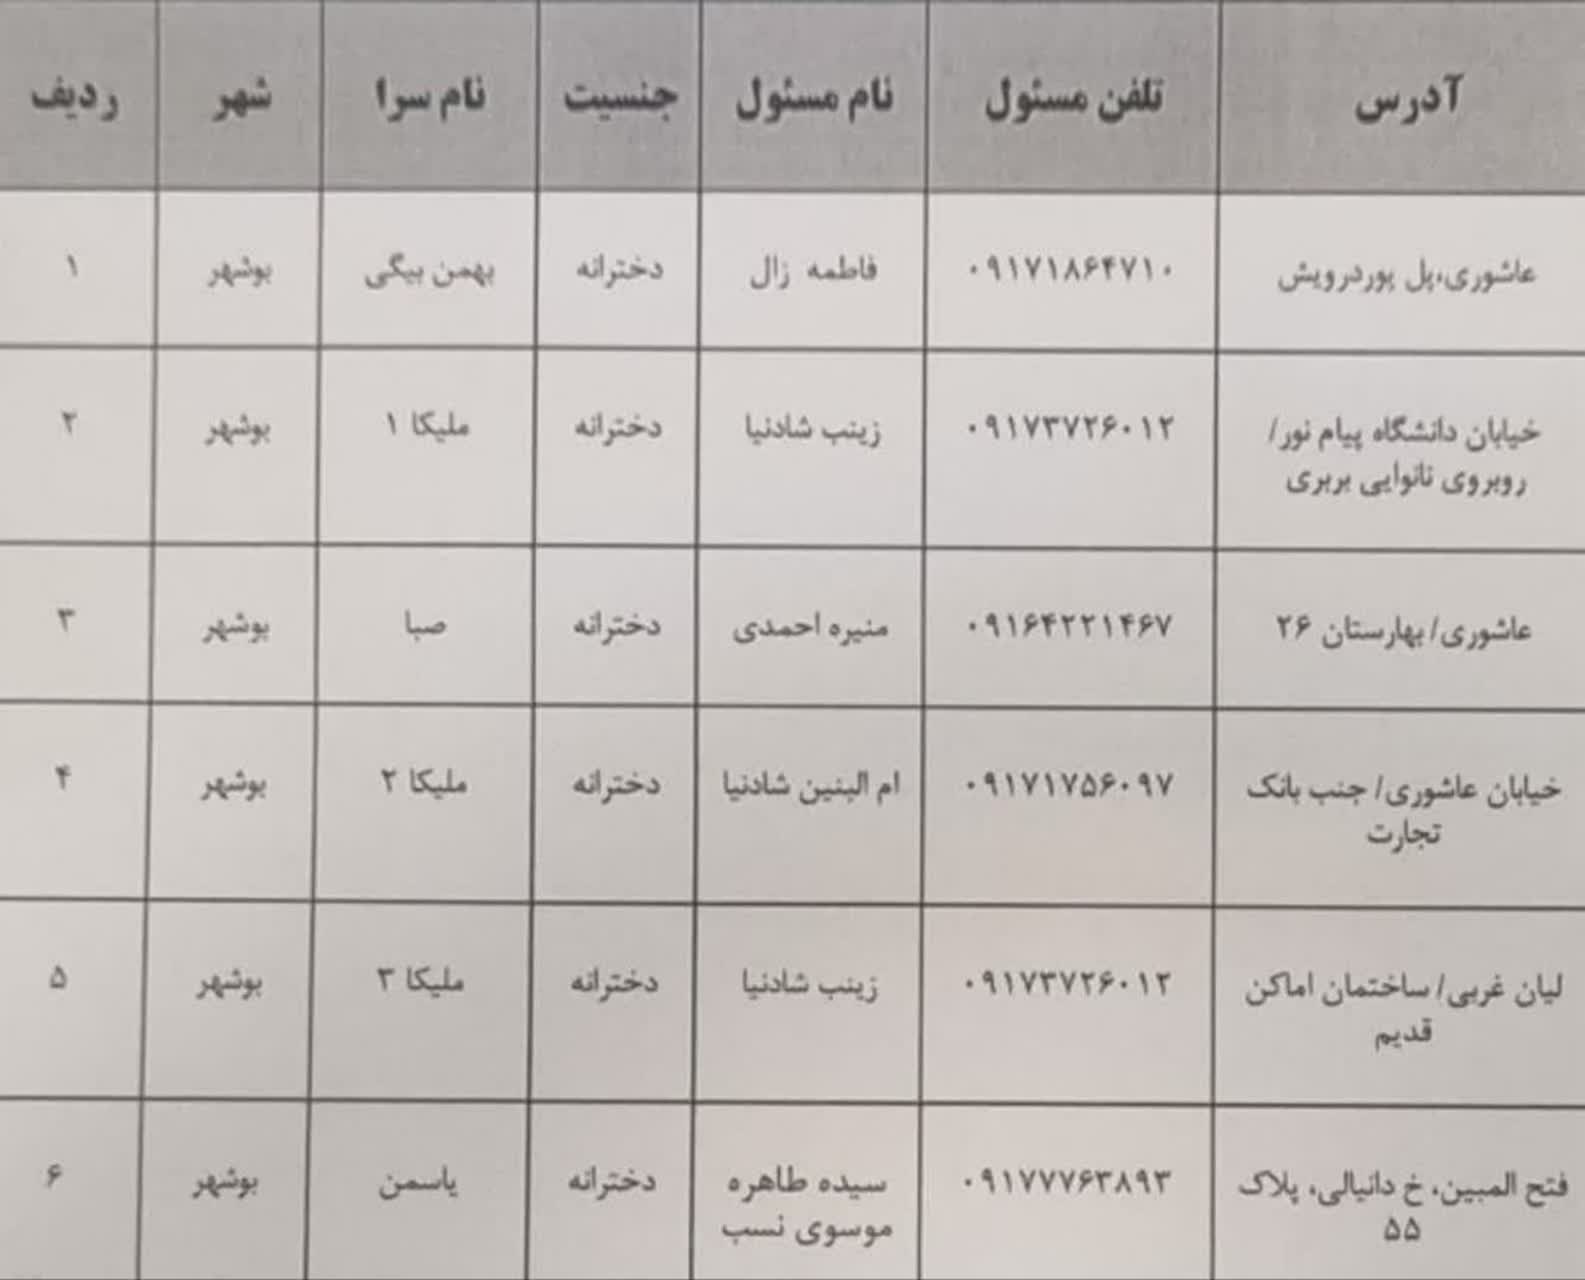 ردیف شهر نام سرا جنسیت نام مسئول تلفن مسئول آدرس
۱ بوشهر بهمن بیگی دخترانه فاطمه زال ۰۹۱۷۱۸۶۴۷۱۰ عاشوری،پل پوردرویش
۲ بوشهر ملیکا ۱ دخترانه زینب شادنیا ۰۹۱۷۳۷۲۶۰۱۲ خیابان دانشگاه پیام نور/
روبروی نانوایی بربری
۳ بوشهر صبا دخترانه منیره احمدی ۰۹۱۶۴۲۲۱۴۶۷ عاشوری/ بهارستان ۲۶
۴ بوشهر ملیکا ۲ دخترانه ام البنین شادنیا ۰۹۱۷۱۷۵۶۰۹۷ خیابان عاشوری/ جنب بانک
تجارت
۵ بوشهر ملیکا ۳ دخترانه زینب شادنیا ۰۹۱۷۳۷۲۶۰۱۲ لیان غربی/ ساختمان اماکن
قدیم
۶ بوشهر یاسمن دخترانه سیده طاهره ۰۹۱۷۷۷۶۳۸۹۳ فتح المبین، خ دانیالی، پلاک
موسوی نسب ۵۵